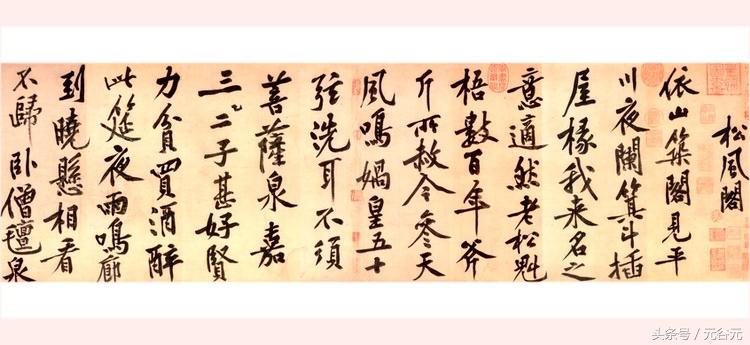 松風閣
依山築閣見平
川夜闌箕斗插
屋椽我来名之
意適然老松魁
梧數百年斧
斤所赦今參天
風鳴媧皇五十
弦洗耳不須
菩薩泉嘉
三二子甚好賢
力貧買酒醉
此筵夜雨鳴廊
到曉懸相看
不歸卧僧氊泉
头条号 / 元谷元